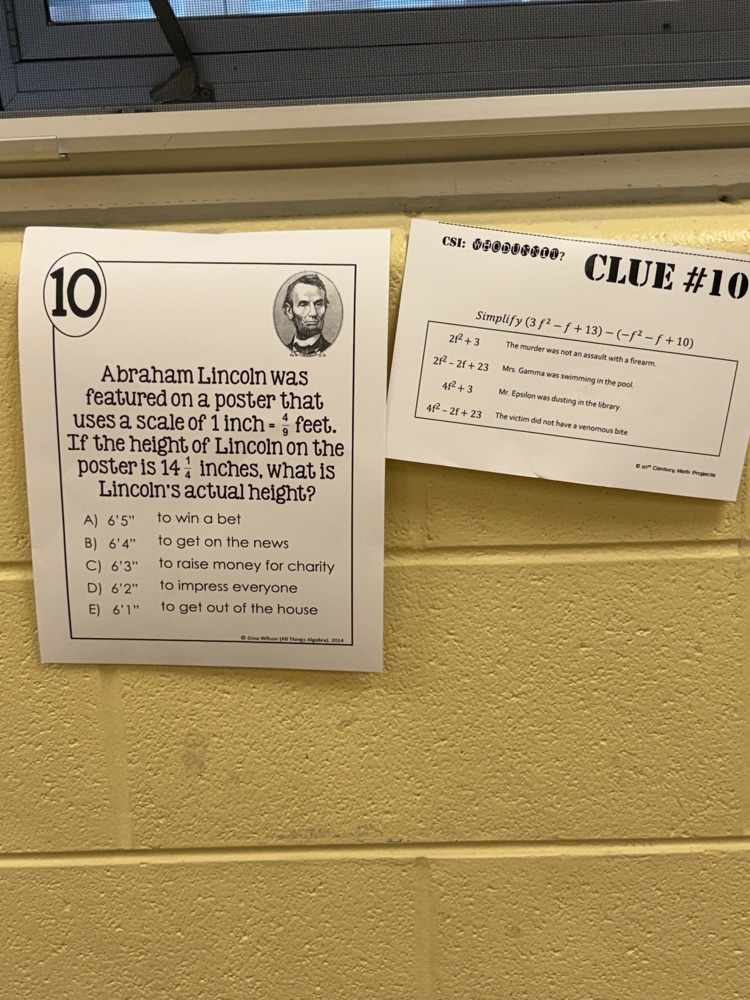 10
Abraham Lincoln was
featured on a poster that
uses a scale of 1 inch = 4/9 feet.
If the height of Lincoln on the
poster is 14 1/4 inches, what is
Lincoln's actual height?
A) 6'5" to win a bet
B) 6'4" to get on the news
C) 6'3" to raise money for charity
D) 6'2" to impress everyone
E) 6'1" to get out of the house
© Gina Wilson (All Things Algebra), 2014
CSI: WHODUNNIT?
CLUE #10
Simplify (3f² − f + 13) − (−f² − f + 10)
2f² + 3 The murder was not an assault with a firearm.
2f² − 2f + 23 Mrs. Gamma was swimming in the pool.
4f² + 3 Mr. Epsilon was dusting in the library.
4f² − 2f + 23 The victim did not have a venomous bite.
© 21st Century Math Projects